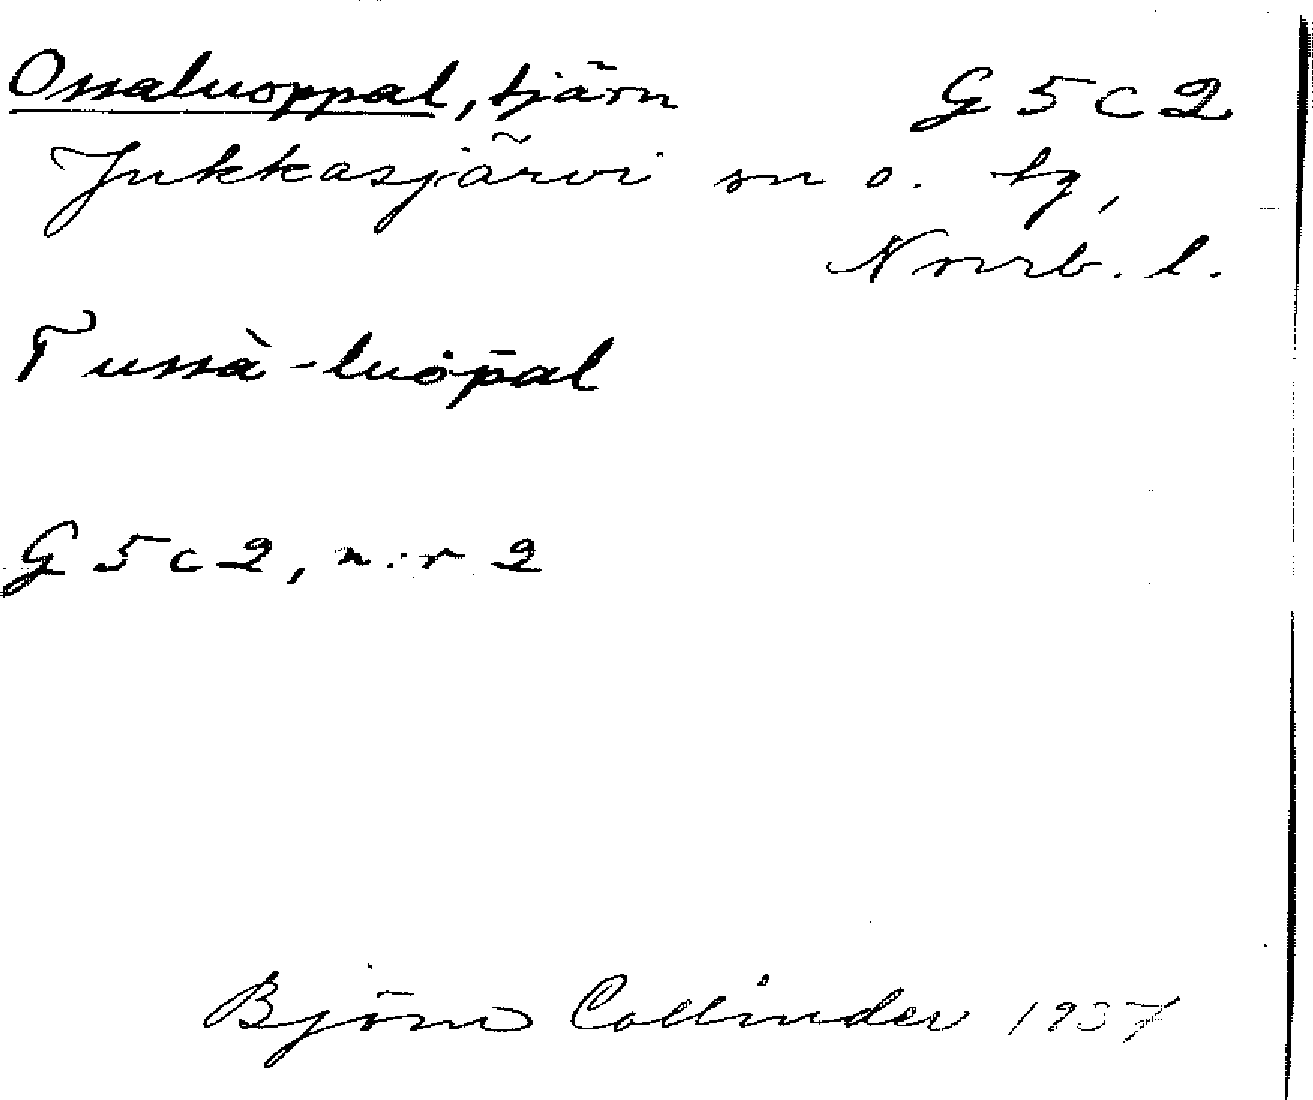 Ossaluoppal, tjärn G5c2
Jukkasjärvi sn o. tg,
Norrb. l.
Tussà-luòpal
G5c2, n:r 2
Björn Collinder 1937